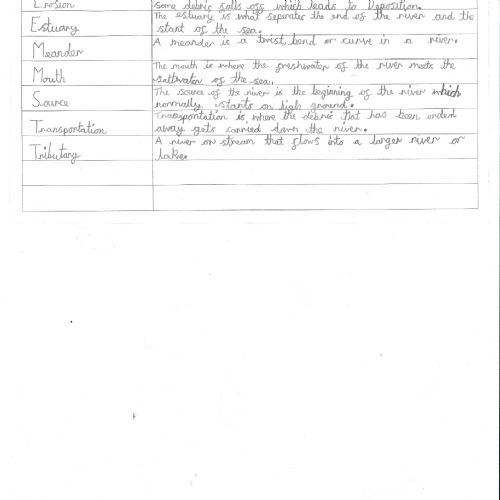 Erosion
Some debris falls off which leads to Deposition.
Estuary
The estuary is what separates the end of the river and the
start of the sea.
Meander
A meander is a twist, bend or curve in a river.
Mouth
The mouth is where the freshwater of the river meets the
saltwater of the sea.
Source
The source of the river is the beginning of the river which
normally starts on high ground.
Transportation
Transportation is where the debris that has been
away gets carried down the river.
Tributary
A river or stream that flows into a larger river or
lake.